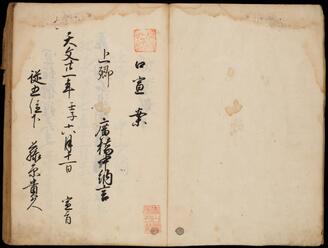 口宣案
上卿 廣橋中納言
天文廿一年壬子六月十一日 宣旨
従五位下 藤原貴久